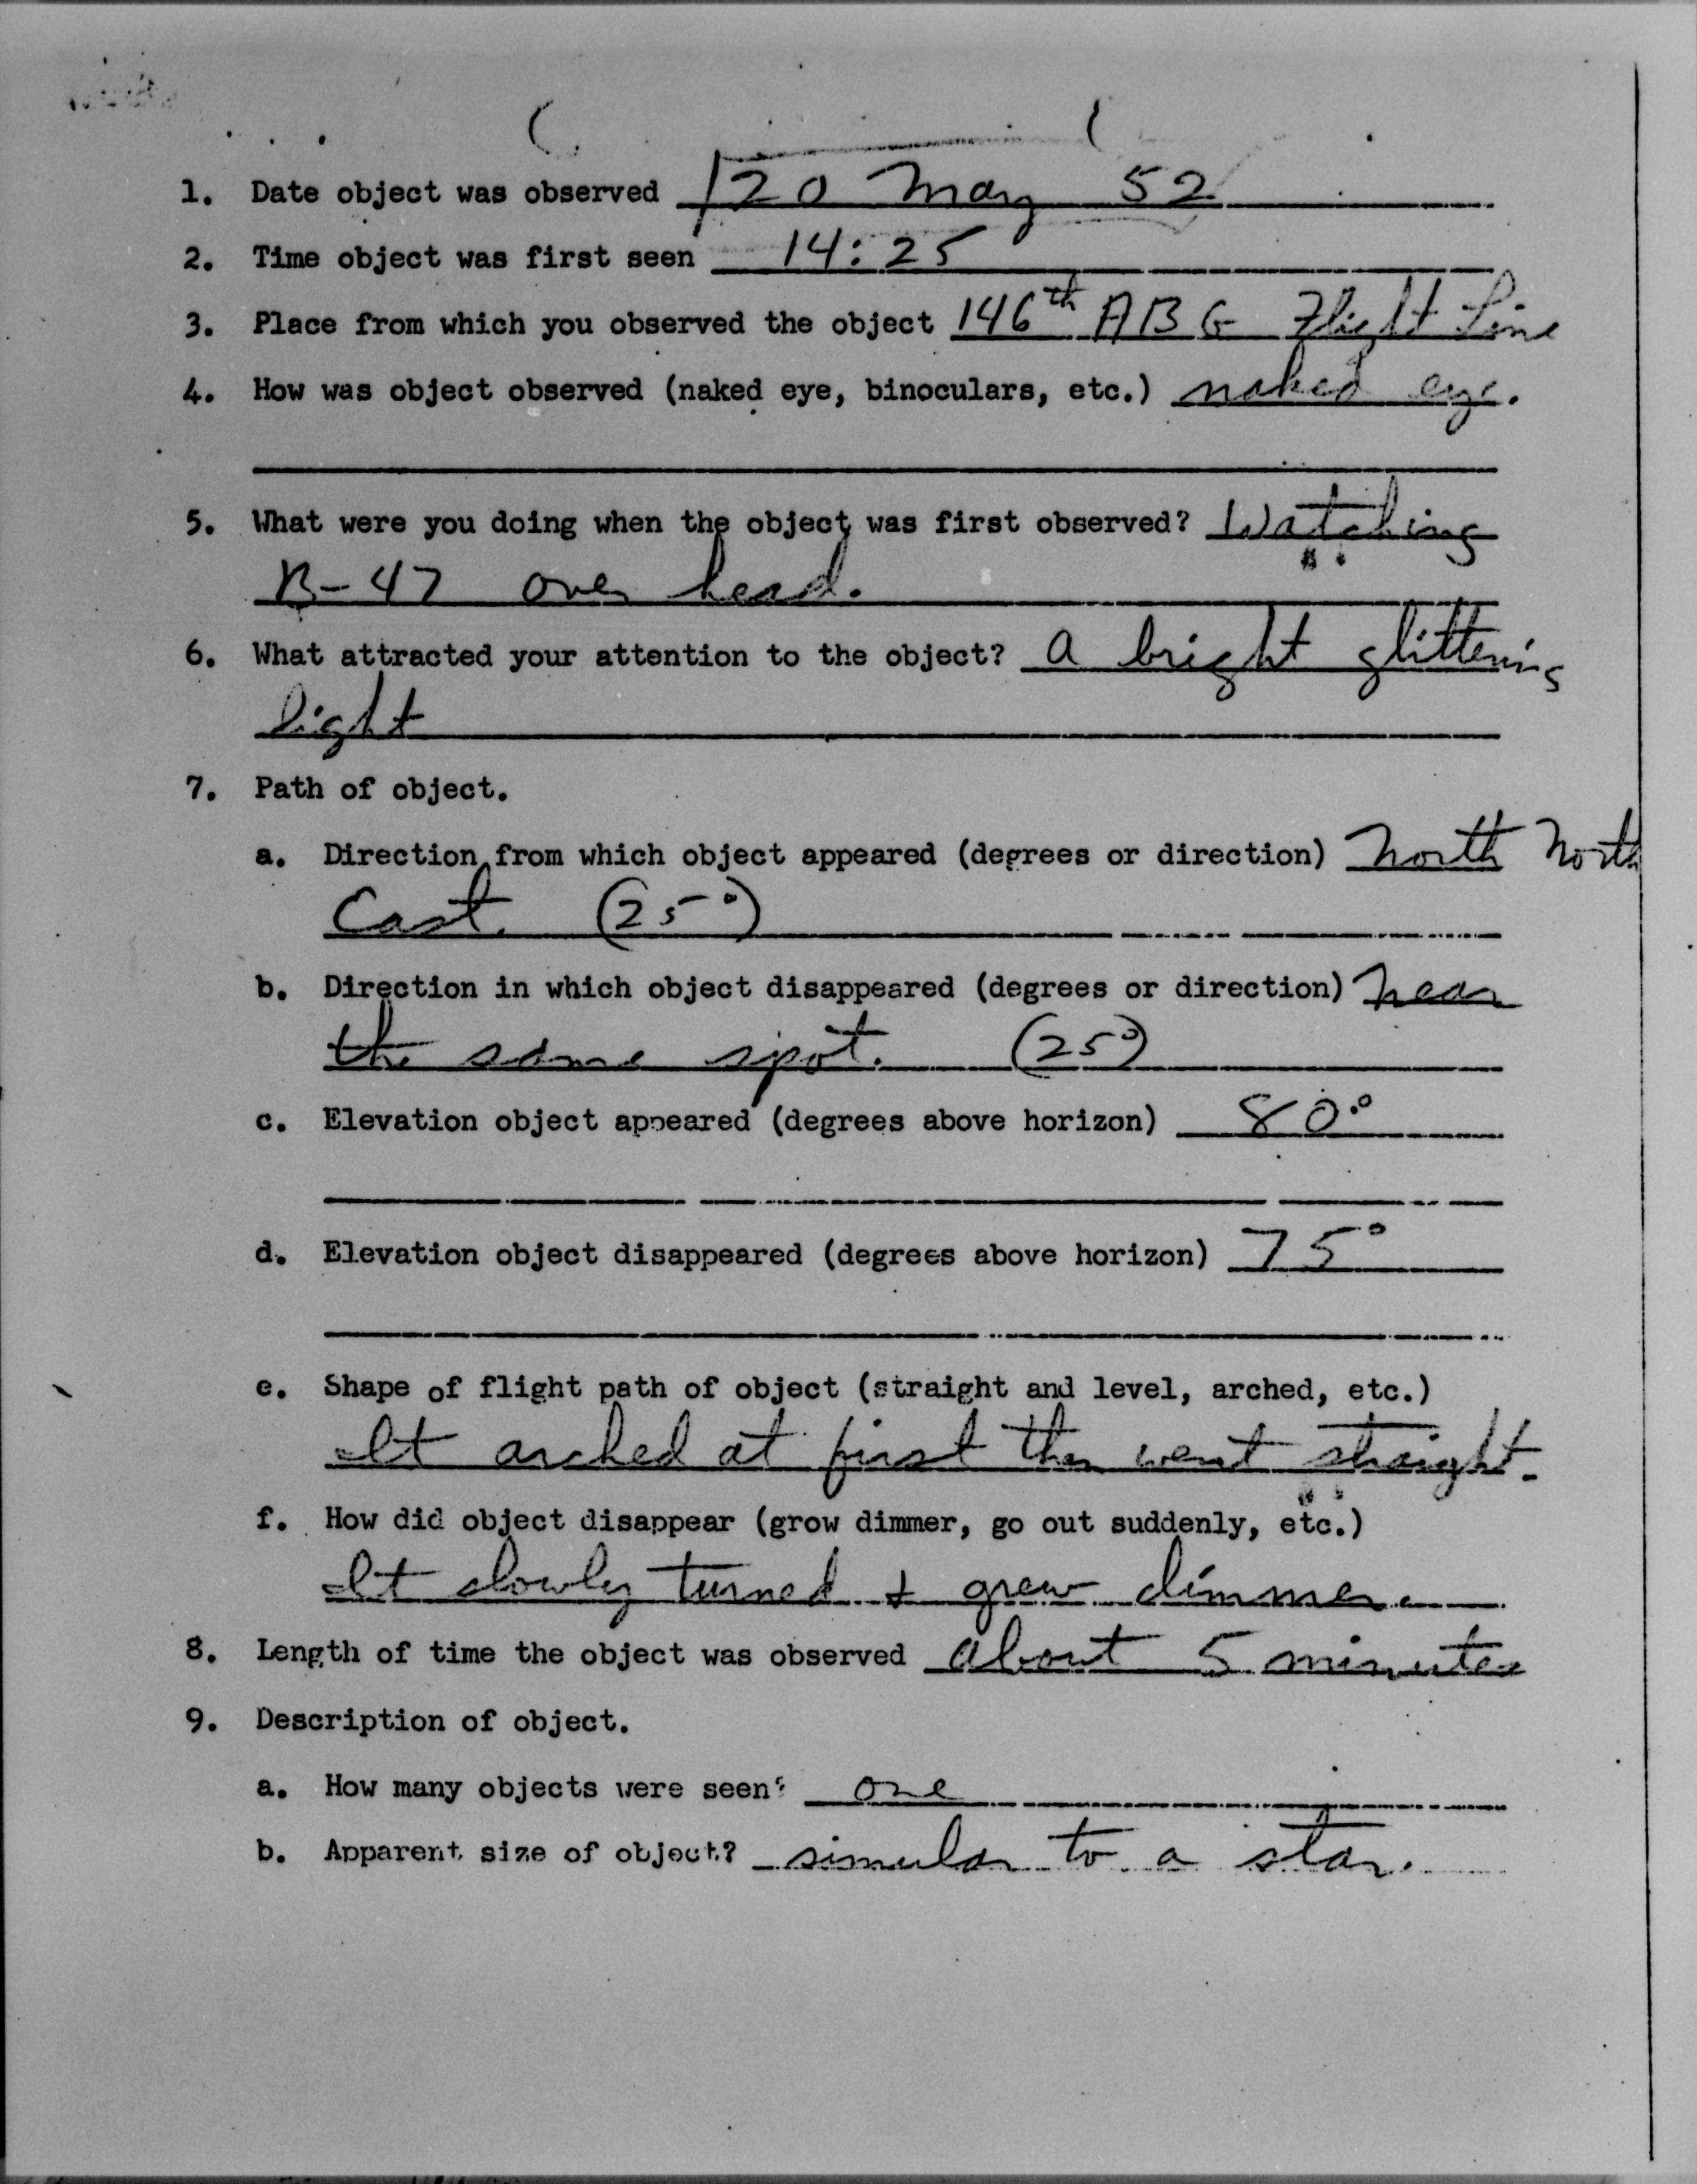 1. Date object was observed 20 May 52
2. Time object was first seen 14:25
3. Place from which you observed the object 146th ABG Flight Line
4. How was object observed (naked eye, binoculars, etc.) naked eye.
5. What were you doing when the object was first observed? Watching
B-47 over head.
6. What attracted your attention to the object? a bright glittering
light
7. Path of object.
a. Direction from which object appeared (degrees or direction) North North
East. (25°)
b. Direction in which object disappeared (degrees or direction) near
the same spot. (25°)
c. Elevation object appeared (degrees above horizon) 80°
d. Elevation object disappeared (degrees above horizon) 75°
e. Shape of flight path of object (straight and level, arched, etc.)
It arched at first then went straight.
f. How did object disappear (grow dimmer, go out suddenly, etc.)
It slowly turned + grew dimmer.
8. Length of time the object was observed about 5 minutes
9. Description of object.
a. How many objects were seen? one
b. Apparent size of object? simular to a star.